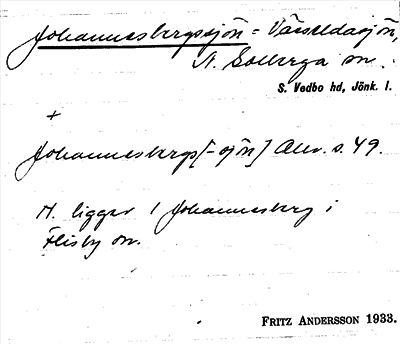 Johannesbergssjön = Värsledasjön,
N. Solberga sn.
S. Vedbo hd, Jönk. l.
+
Johannesbergs[-sjön] Allv. s. 49.
H. ligger l Johannesberg i
Flisby sn.
FRITZ ANDERSSON 1933.